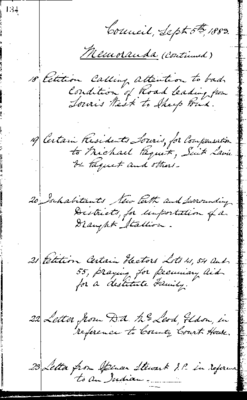 134
Council, Sept 5th, 1883
Memoranda (continued)
18 Petition calling attention to bad
condition of Road leading from
Souris West to Sharp Bend.
19 Certain Residents Souris, for Compensation
to Michael Paquet,
& Paquet and others.
20 Inhabitants New Perth and Surrounding
Districts, for importation of a
Draught Stallion.
21 Petition Certain Electors Lots 41, 54 and
55, praying for pecuniary aid
for a destitute Family.
22 Letter from Dd McLeod Esdon, in
reference to County Court House.
23 Letter from Spencer Stewart J.P. in reference
to an Indian.